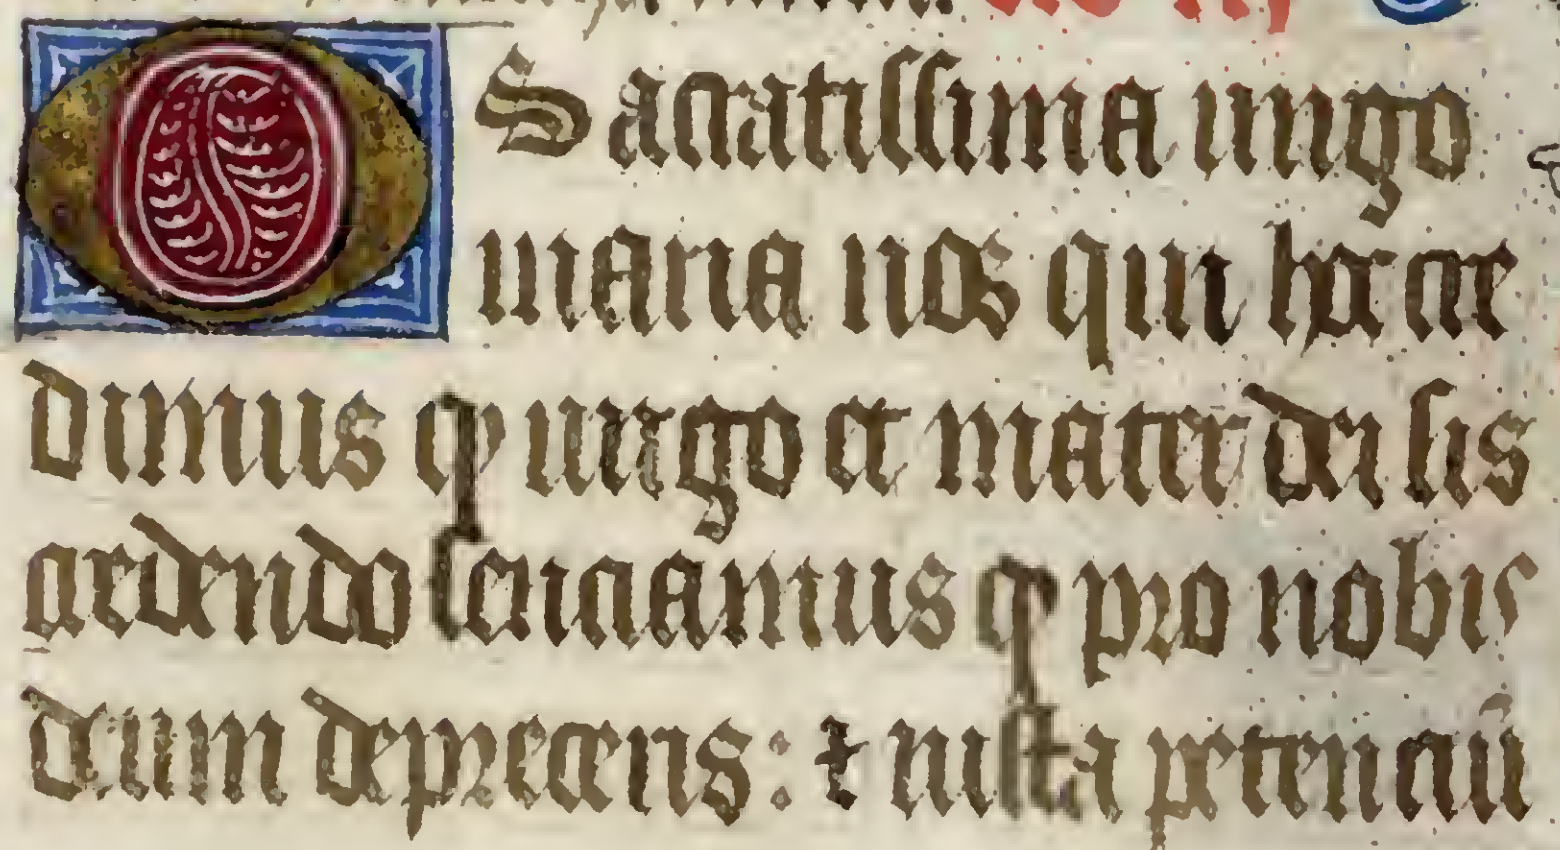 O Sacratissima uirgo
maria nos qui hoc cre
dimus q uirgo et mater dei sis
credendo senciamus q pro nobis
deum depreceris: ⁊ iusta petenciū